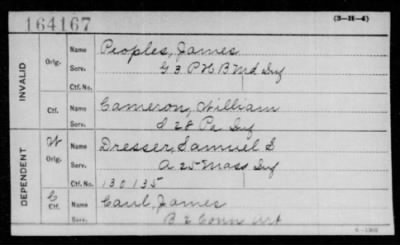 164167
(3-11-4)
INVALID
Orig. Name Peoples, James
Serv. G 3 P H B Md Inf
Ctf. No.
Ctf. Name Cameron, William
Serv. I 28 Pa Inf
DEPENDENT
W Orig. Name Dresser, Samuel S
Serv. A 25 Mass Inf
Ctf. No. 130135
C Ctf. Name Caul, James
Serv. B 2 Conn Art